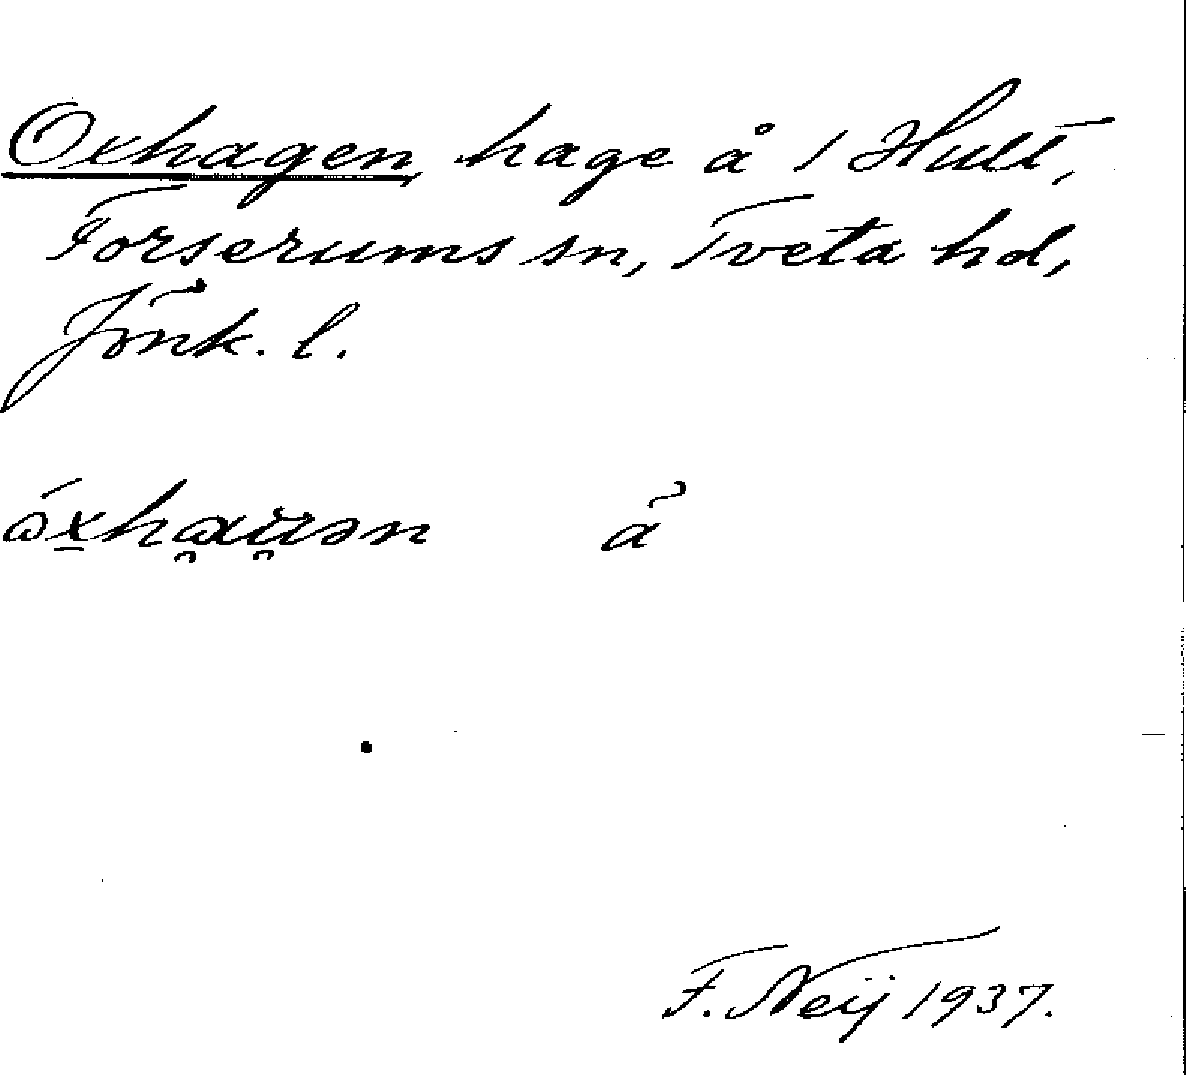 Oxhagen, hage å 1 Hult,
Forserums sn, Tveta hd,
Jönk. l.
å
F. Neij 1937.